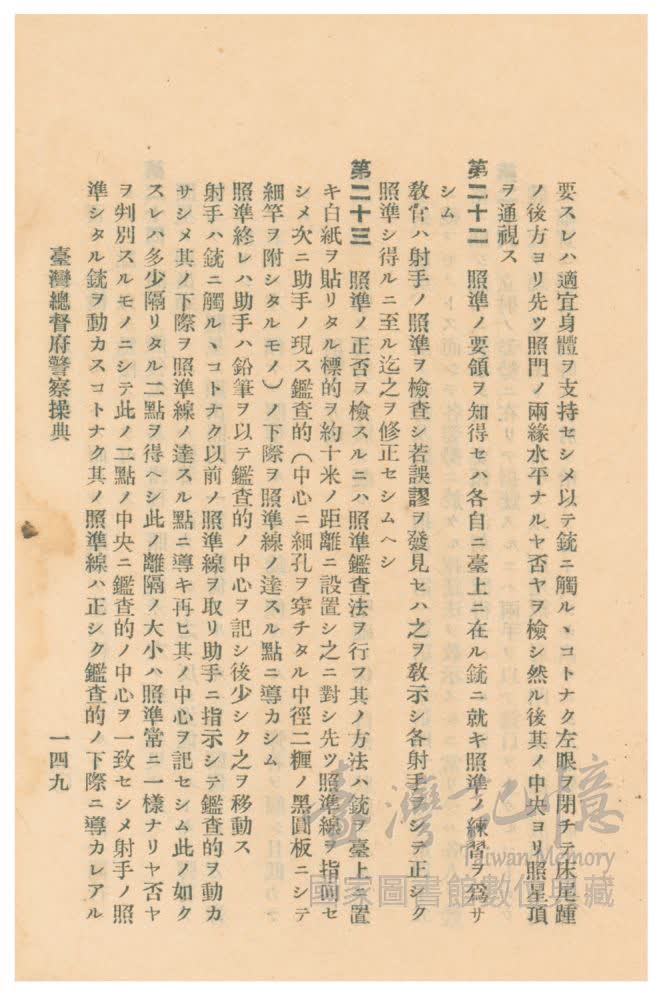 要スレハ適宜身體ヲ支持セシメ以テ銃ニ觸ルヽコトナク左眼ヲ閉チテ床尾踵
ノ後方ヨリ先ツ照門ノ兩緣水平ナルヤ否ヤヲ檢シ然ル後其ノ中央ヨリ照星頂
ヲ通視ス
第二十二 照準ノ要領ヲ知得セハ各自ニ臺上ニ在ル銃ニ就キ照準ノ練習ヲ爲サ
シム
敎官ハ射手ノ照準ヲ檢查シ若誤謬ヲ發見セハ之ヲ敎示シ各射手ヲシテ正シク
照準シ得ルニ至ル迄之ヲ修正セシムヘシ
第二十三 照準ノ正否ヲ檢スルニハ照準鑑查法ヲ行フ其ノ方法ハ銃ヲ臺上ニ置
キ白紙ヲ貼リタル標的ヲ約十米ノ距離ニ設置シ之ニ對シ先ツ照準線ヲ指向セ
シメ次ニ助手ノ現ス鑑查的(中心ニ細孔ヲ穿チタル中徑二糎ノ黑圓板ニシテ
細竿ヲ附シタルモノ)ノ下際ヲ照準線ノ達スル點ニ導カシム
照準終レハ助手ハ鉛筆ヲ以テ鑑查的ノ中心ヲ記シ後少シク之ヲ移動ス
射手ハ銃ニ觸ルヽコトナク以前ノ照準線ヲ取リ助手ニ指示シテ鑑查的ヲ動カ
サシメ其ノ下際ヲ照準線ノ達スル點ニ導キ再ヒ其ノ中心ヲ記セシム此ノ如ク
スレハ多少隔リタル二點ヲ得ヘシ此ノ離隔ノ大小ハ照準常ニ一樣ナリヤ否ヤ
ヲ判別スルモノニシテ此ノ二點ノ中央ニ鑑查的ノ中心ヲ一致セシメ射手ノ照
準シタル銃ヲ動カスコトナク其ノ照準線ハ正シク鑑查的ノ下際ニ導カレアル
臺灣總督府警察操典 一四九
臺灣記憶
Taiwan Memory
國家圖書館數位典藏